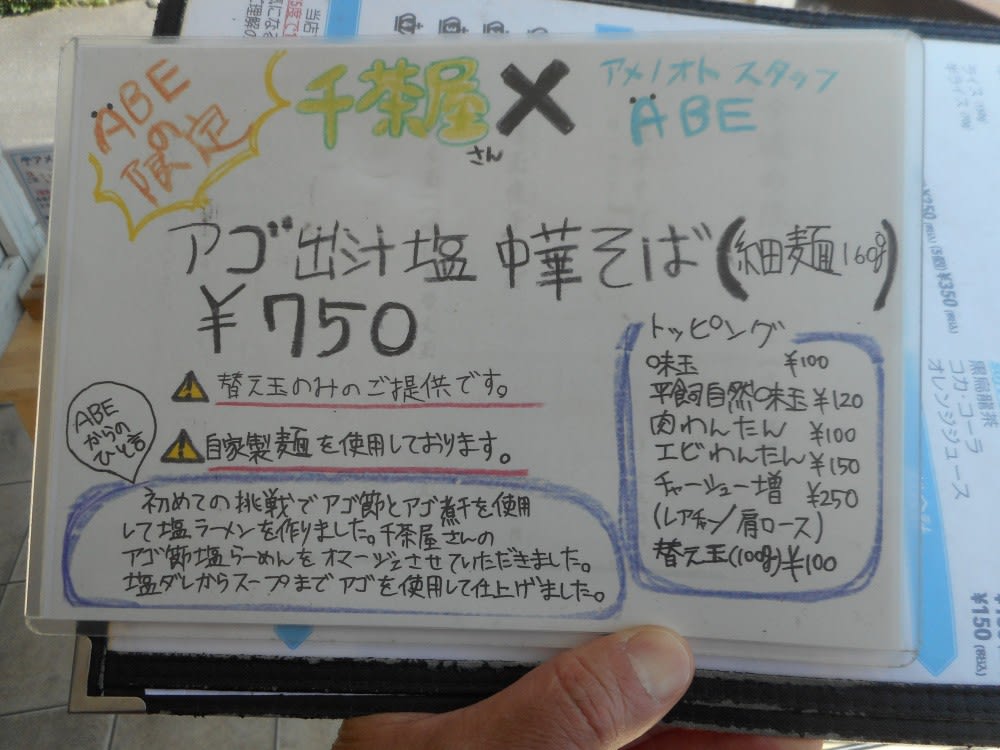 ÄBE
の
限定
千茶屋
さん
×
アメノオト スタッフ
ÄBE
アゴ出汁塩 中華そば(細麺160g)
¥750
替え玉のみのご提供です。
自家製麺を使用しております。
ABE
からの
ひと言
初めての挑戦でアゴ節とアゴ煮干を使用
して塩ラーメンを作りました。千茶屋さんの
アゴ節塩らーめんをオマージュさせていただきました。
塩ダレからスープまでアゴを使用して仕上げました。
トッピング
味玉 ¥100
平飼自然味玉 ¥120
肉わんたん ¥100
エビわんたん ¥150
チャーシュー増 ¥250
(レアチャー/肩ロース)
替え玉(100g) ¥100
コカ・コーラ
オレンジジュース
¥250(税込)
¥350(税込)
¥150(税込)